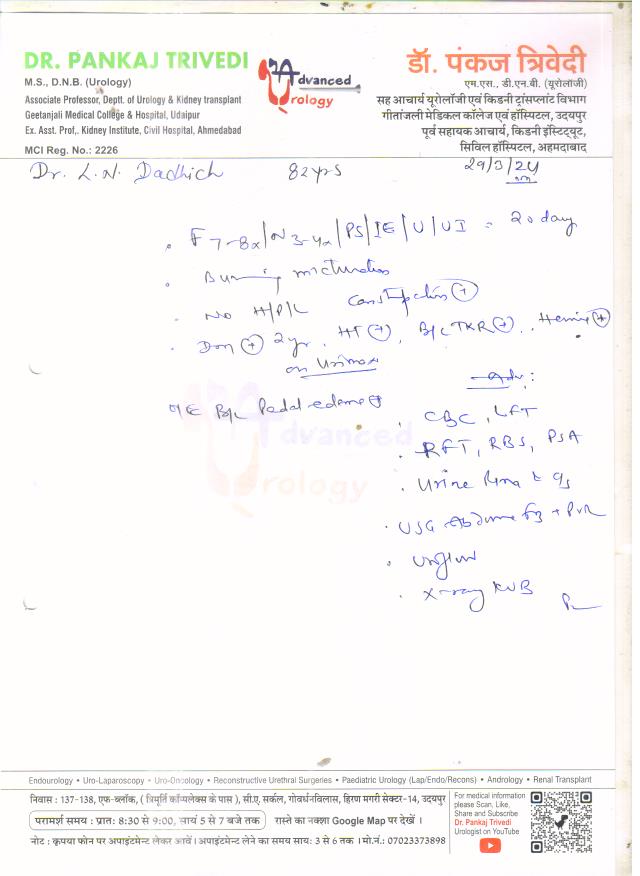 DR. PANKAJ TRIVEDI
M.S., D.N.B. (Urology)
Associate Professor, Deptt. of Urology & Kidney transplant
Geetanjali Medical College & Hospital, Udaipur
Ex. Asst. Prof,. Kidney Institute, Civil Hospital, Ahmedabad
MCI Reg. No.: 2226
Advanced
Urology
डॉ. पंकज त्रिवेदी
एम.एस., डी.एन.बी. (यूरोलॉजी)
सह आचार्य यूरोलॉजी एवं किडनी ट्रांसप्लांट विभाग
गीतांजली मेडिकल कॉलेज एवं हॉस्पिटल, उदयपुर
पूर्व सहायक आचार्य, किडनी इंस्टिट्यूट,
सिविल हॉस्पिटल, अहमदाबाद
Dr. L.N. Dadhich 82yrs 29/3/24
F 7-8x/N 3-4x/PS/IE/U/UI = 20 day
Burning micturation
No H/P/L Constipation (+)
2yr. HT (+), B/L TKR (+), Hernia (+)
on Urimax
O/E B/L Pedal edema (+)
Adv:
CBC, LFT
RFT, RBS, PSA
Urine
USG Abdomen + PVR
X-ray KUB
Advanced
Urology
Endourology • Uro-Laparoscopy • Uro-Oncology • Reconstructive Urethral Surgeries • Paediatric Urology (Lap/Endo/Recons) • Andrology • Renal Transplant
निवास : 137-138, एफ-ब्लॉक, ( त्रिमूर्ति कॉम्पलेक्स के पास ), सी.ए. सर्कल, गोवर्धनविलास, हिरण मगरी सेक्टर-14, उदयपुर
परामर्श समय : प्रात: 8:30 से 9:00, सायं 5 से 7 बजे तक रास्ते का नक्शा Google Map पर देखें ।
नोट : कृपया फोन पर अपाइंटमेन्ट लेकर आवें। अपाइंटमेन्ट लेने का समय साय: 3 से 6 तक । मो.नं.: 07023373898
For medical information
please Scan, Like,
Share and Subscribe
Dr. Pankaj Trivedi
Urologist on YouTube